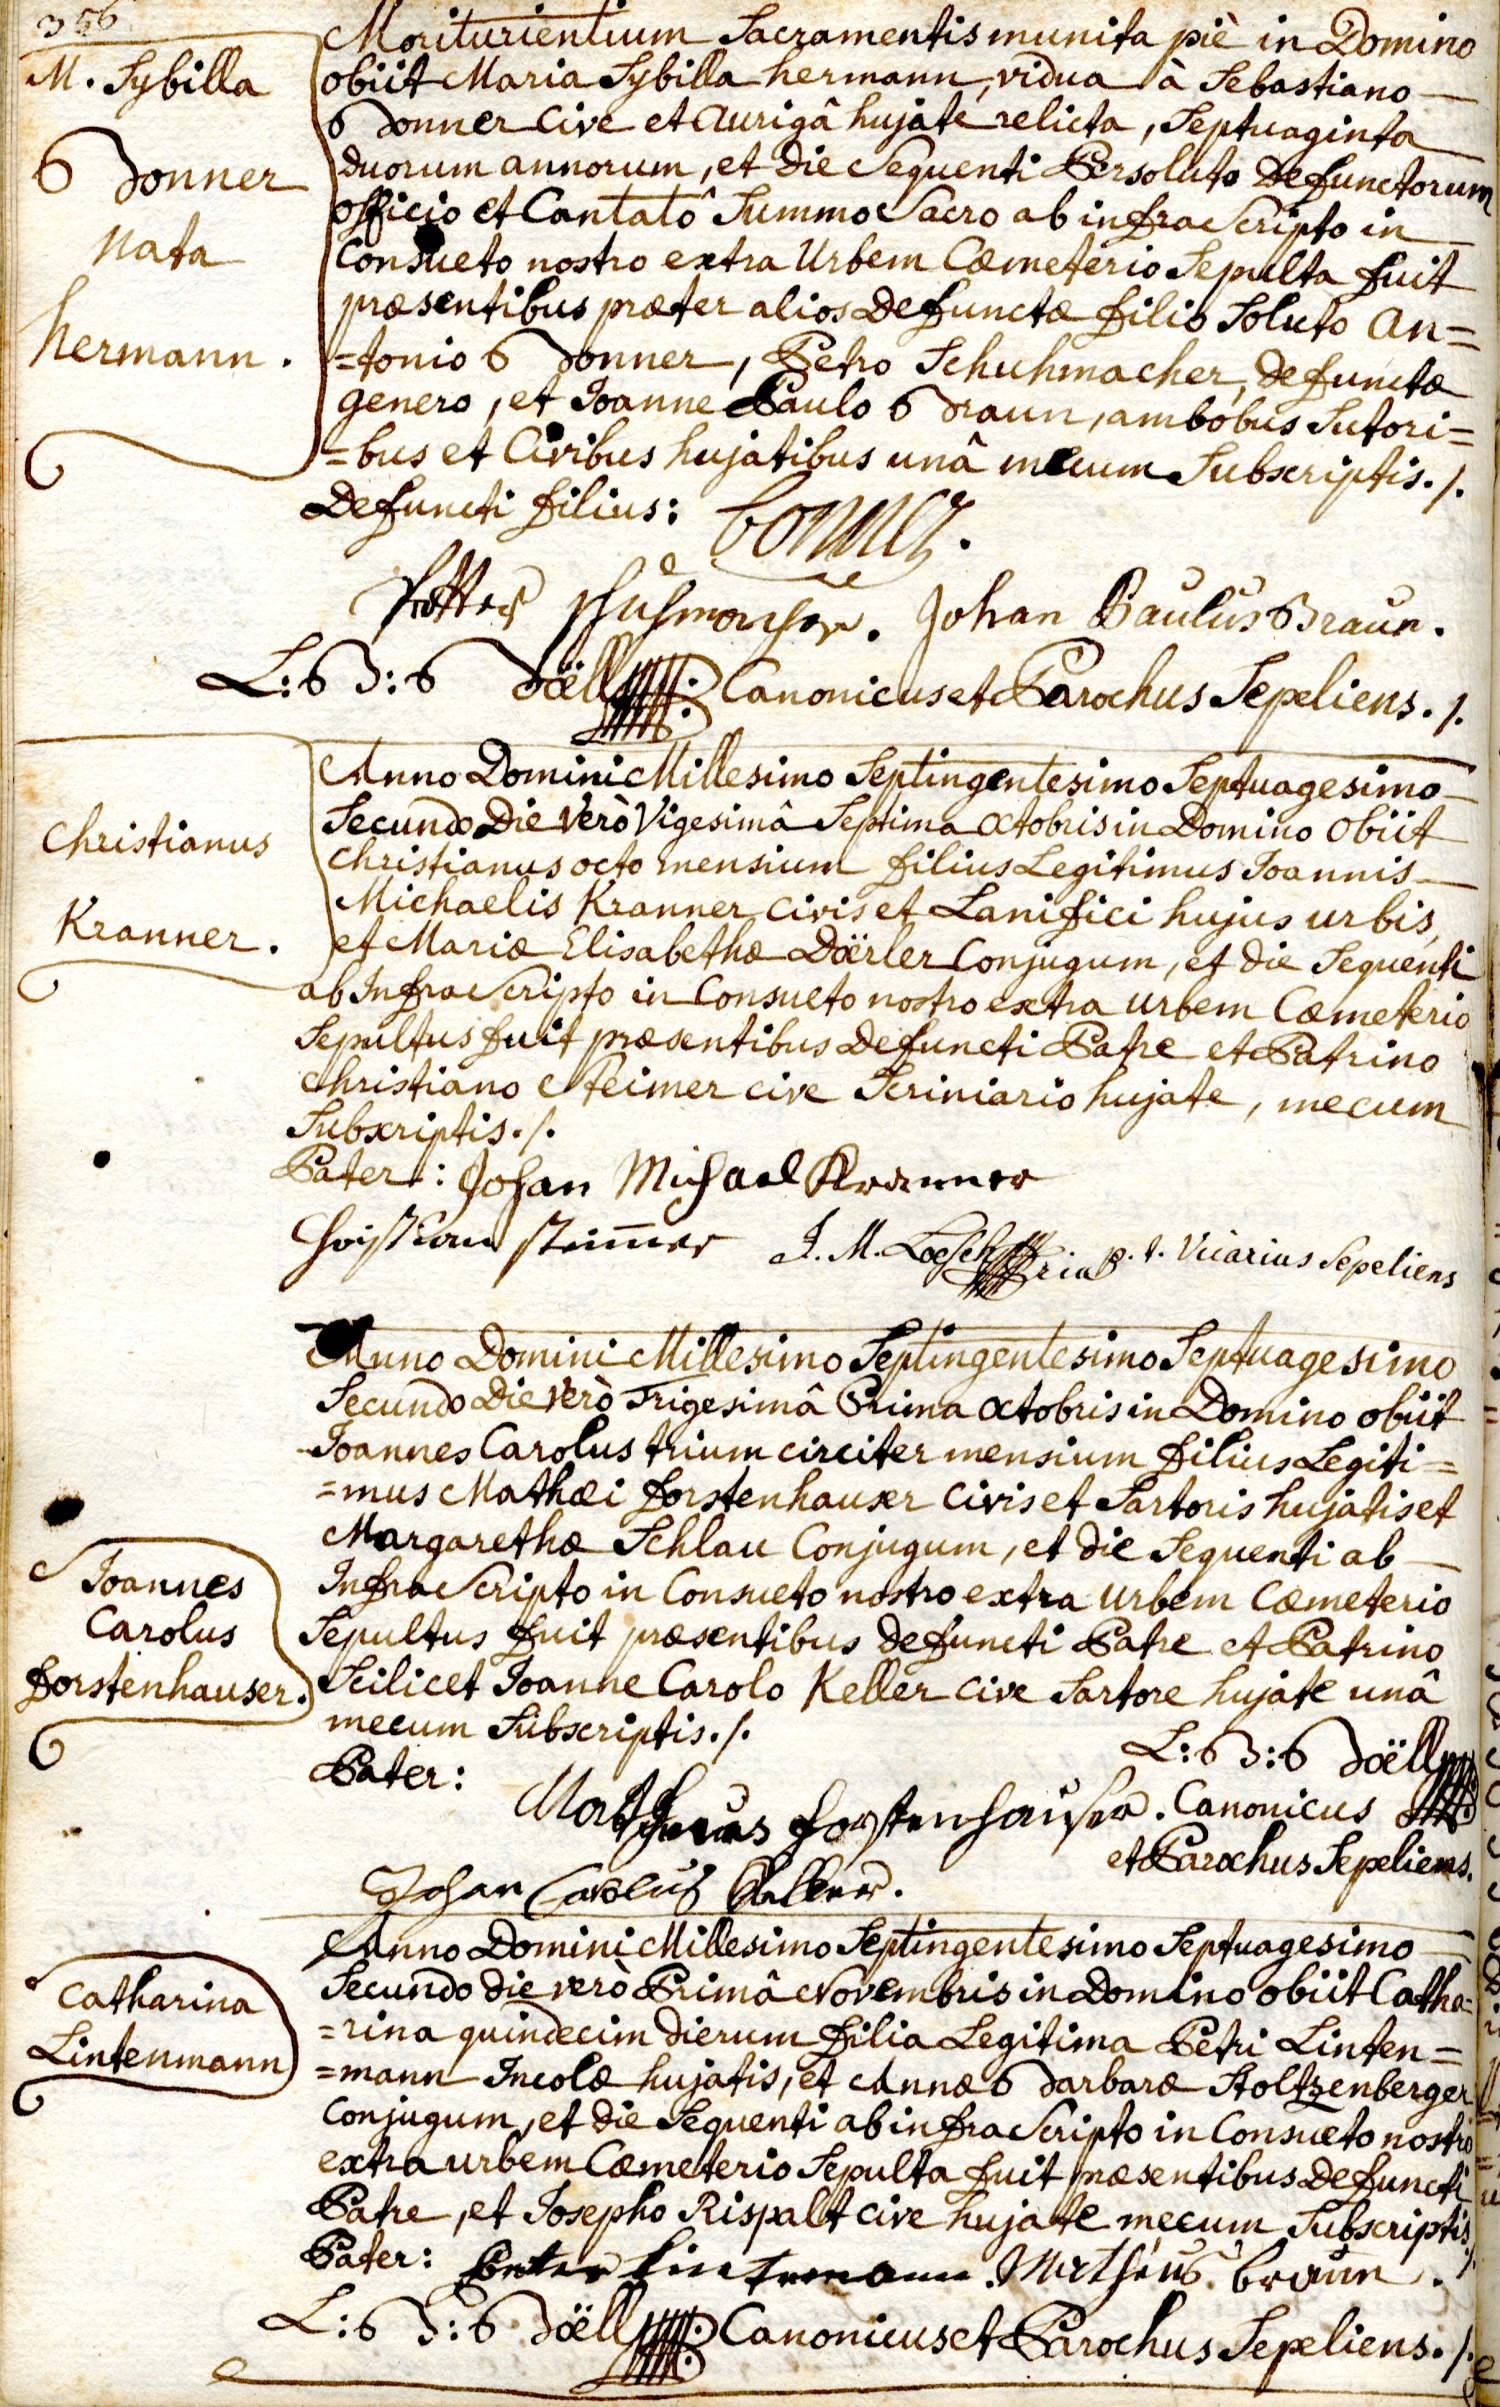 356
M. Sybilla
Bonner
nata
hermann.
Moriturientium Sacramentis munita piè in Domino
obiit Maria Sybilla hermann, vidua à Sebastiano
Bonner Cive et Aurigâ hujate relicta, Septuaginta
duorum annorum, et die Sequenti Persoluto Defunctorum
officio et Cantatô Summo Sacro ab infraScripto in
Consueto nostro extra Urbem Cœmeterio Sepulta fuit
præsentibus præter alios Defunctæ filio Soluto An=
=tonio Bonner, Petro Schuhmacher, defunctæ
genero, et Joanne Paulo Braun, ambobus Sutori=
=bus et Civibus hujatibus unâ mecum Subscriptis ./.
Defuncti filius: bonner.
Petter schuhmacher. Johan Baulus Braun.
L: B: Böll Canonicus et Parochus Sepeliens ./.
Christianus
Kranner.
Anno Domini Millesimo Septingentesimo Septuagesimo
Secundo Die verò Vigesimâ Septima octobris in Domino obiit
Christianus octo mensium filius Legitimus Joannis
Michaelis Kranner civis et Lanifici hujus urbis,
et Mariæ Elisabethæ Döerler Conjugum, et die Sequenti
ab InfraScripto in Consueto nostro extra urbem Cœmeterio
Sepultus fuit præsentibus Defuncti Patre et Patrino
Christiano Steimer cive Scriniario hujate, mecum
Subscriptis ./.
Pater: Johan Michael Kranner
Christian steimer J. M. Loesch p. t. Vicarius Sepeliens
Joannes
Carolus
forstenhauser.
Anno Domini Millesimo Septingentesimo Septuagesimo
Secundo Die verò Trigesimâ Prima octobris in Domino obiit
Joannes Carolus trium circiter mensium filius Legiti=
=mus Mathæi forstenhauser civis et Sartoris hujatis et
Margarethæ Schlau Conjugum, et die Sequenti ab
InfraScripto in Consueto nostro extra urbem Cœmeterio
Sepultus fuit præsentibus defuncti Patre et Patrino
Scilicet Joanne Carolo Keller cive Sartore hujate unâ
mecum Subscriptis ./.
Pater: Mattheus forstenhauser.
L: B: Böll
Canonicus
et Parochus Sepeliens.
Johan Carolus Keller.
Catharina
Lintenmann
Anno Domini Millesimo Septingentesimo Septuagesimo
Secundo die verò Primâ Novembris in Domino obiit Catha=
=rina quindecim dierum filia Legitima Petri Linten=
=mann Incolæ hujatis, et Annæ Barbaræ Stoltzenberger
Conjugum, et die Sequenti ab infraScripto in Consueto nostro
extra urbem Cœmeterio Sepulta fuit præsentibus Defuncti
Patre, et Josepho Rispalt cive hujate mecum Subscriptis ./.
Pater: Petter Lintemann. Matheus braun.
L: B: Böll Canonicus et Parochus Sepeliens ./.